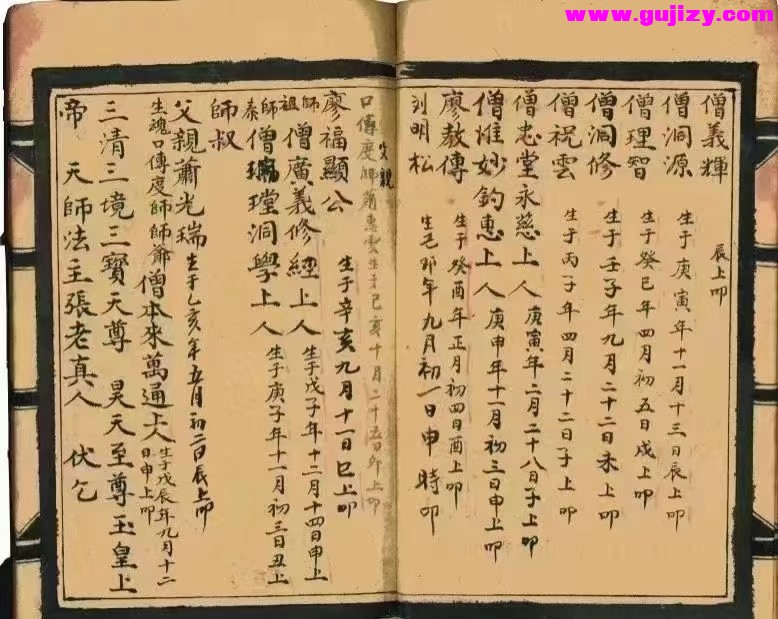 www.gujizy.com
僧義輝 辰上叩
僧洞源 生于庚寅年十一月十三日辰上叩
僧理智 生于癸巳年四月初五日戌上叩
僧洞修 生于壬子年九月二十二日未上叩
僧祝雲 生于丙子年四月二十二日子上叩
僧忠堂永慈上人 庚寅年二月二十八日子上叩
僧惟妙鈞惠上人 庚申年十一月初三日申上叩
廖教傳 生于癸酉年正月初四日酉上叩
刘明松 生己卯年九月初一日申時叩
口傳度師蕭惠雲生于己亥十月二十五日卯上叩
廖福顯公 生于辛亥九月十一日巳上叩
師祖 僧廣義修經上人 生于戊子年十二月十四日申上
師泰 僧瑞瑩洞學上人 生于庚子年十一月初三日丑上
師叔
父親蕭光瑞 生于乙亥年五月初二日辰上叩
生魂口傳度師師爺僧本來萬通上人 生于戊辰年九月十二日申上叩
三清三境三寶天尊 昊天至尊玉皇上
帝 天師法主張老真人 伏乞